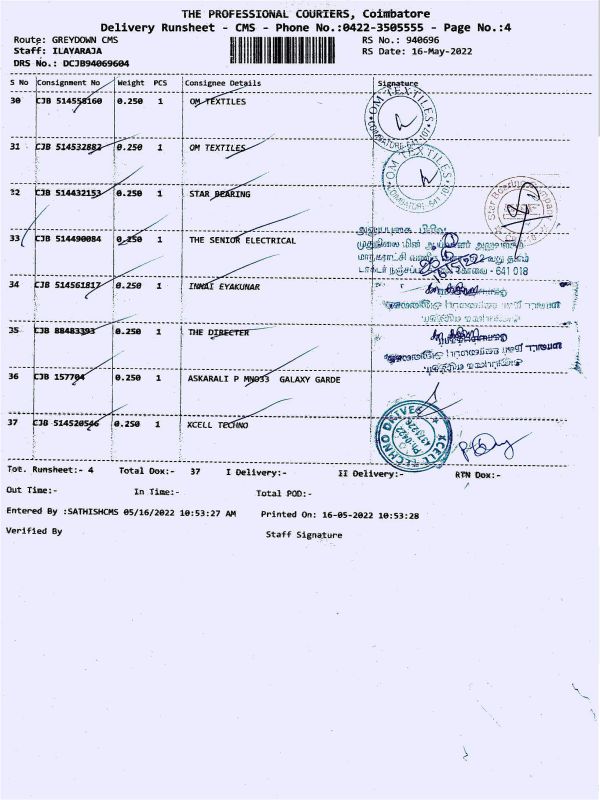 THE PROFESSIONAL COURIERS, Coimbatore
Delivery Runsheet - CMS - Phone No.:0422-3505555 - Page No.:4
Route: GREYDOWN CMS RS No.: 940696
Staff: ILAYARAJA RS Date: 16-May-2022
DRS No.: DCJB94069604
S No Consignment No Weight PCS Consignee Details Signature
30 CJB 514558160 0.250 1 OM TEXTILES
OM TEXTILES
COIMBATORE-641 107
31 CJB 514532882 0.250 1 OM TEXTILES
OM TEXTILES
COIMBATORE-641 107
32 CJB 514432153 0.250 1 STAR BEARING
Star Bearing Company
33 CJB 514490084 0.250 1 THE SENIOR ELECTRICAL
முதுநிலை மின் ஆய்வாளர்
கோவை - 641 018
34 CJB 514561817 0.250 1 INNAI EYAKUNAR
35 CJB 88483393 0.250 1 THE DIRECTER
36 CJB 157704 0.250 1 ASKARALI P MN033 GALAXY GARDE
37 CJB 514520546 0.250 1 XCELL TECHNO
XCELL TECHNO DRIVE
Tot. Runsheet:- 4 Total Dox:- 37 I Delivery:- II Delivery:- RTN Dox:-
Out Time:- In Time:- Total POD:-
Entered By :SATHISHCMS 05/16/2022 10:53:27 AM Printed On: 16-05-2022 10:53:28
Verified By Staff Signature